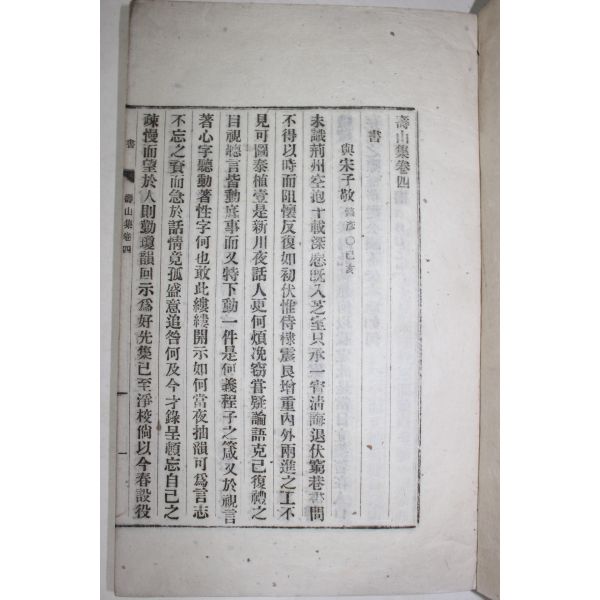 壽山集卷四
書
與宋子敬 鎬彦○己亥
未識荊州空抱十載深慕旣入芝室只承一宵淸誨退伏窮巷書問
不得以時而阻懷反復如初伏惟侍棣震艮增重內外兩進之工不
見可圖泰植壹是新川夜話人更何煩浼竊嘗疑論語克己復禮之
目視聽言皆動底事而又特下動一件是何義程子之箴又於視言
著心字聽動著性字何也敢此縷縷開示如何當夜抽韻可爲言志
不忘之資而急於話情竟孤盛意追咎何及今才錄呈頓忘自己之
疎慢而望於人則勤瓊韻回示爲好先集已至淨校倘以今春設役
書
壽山集卷四
一